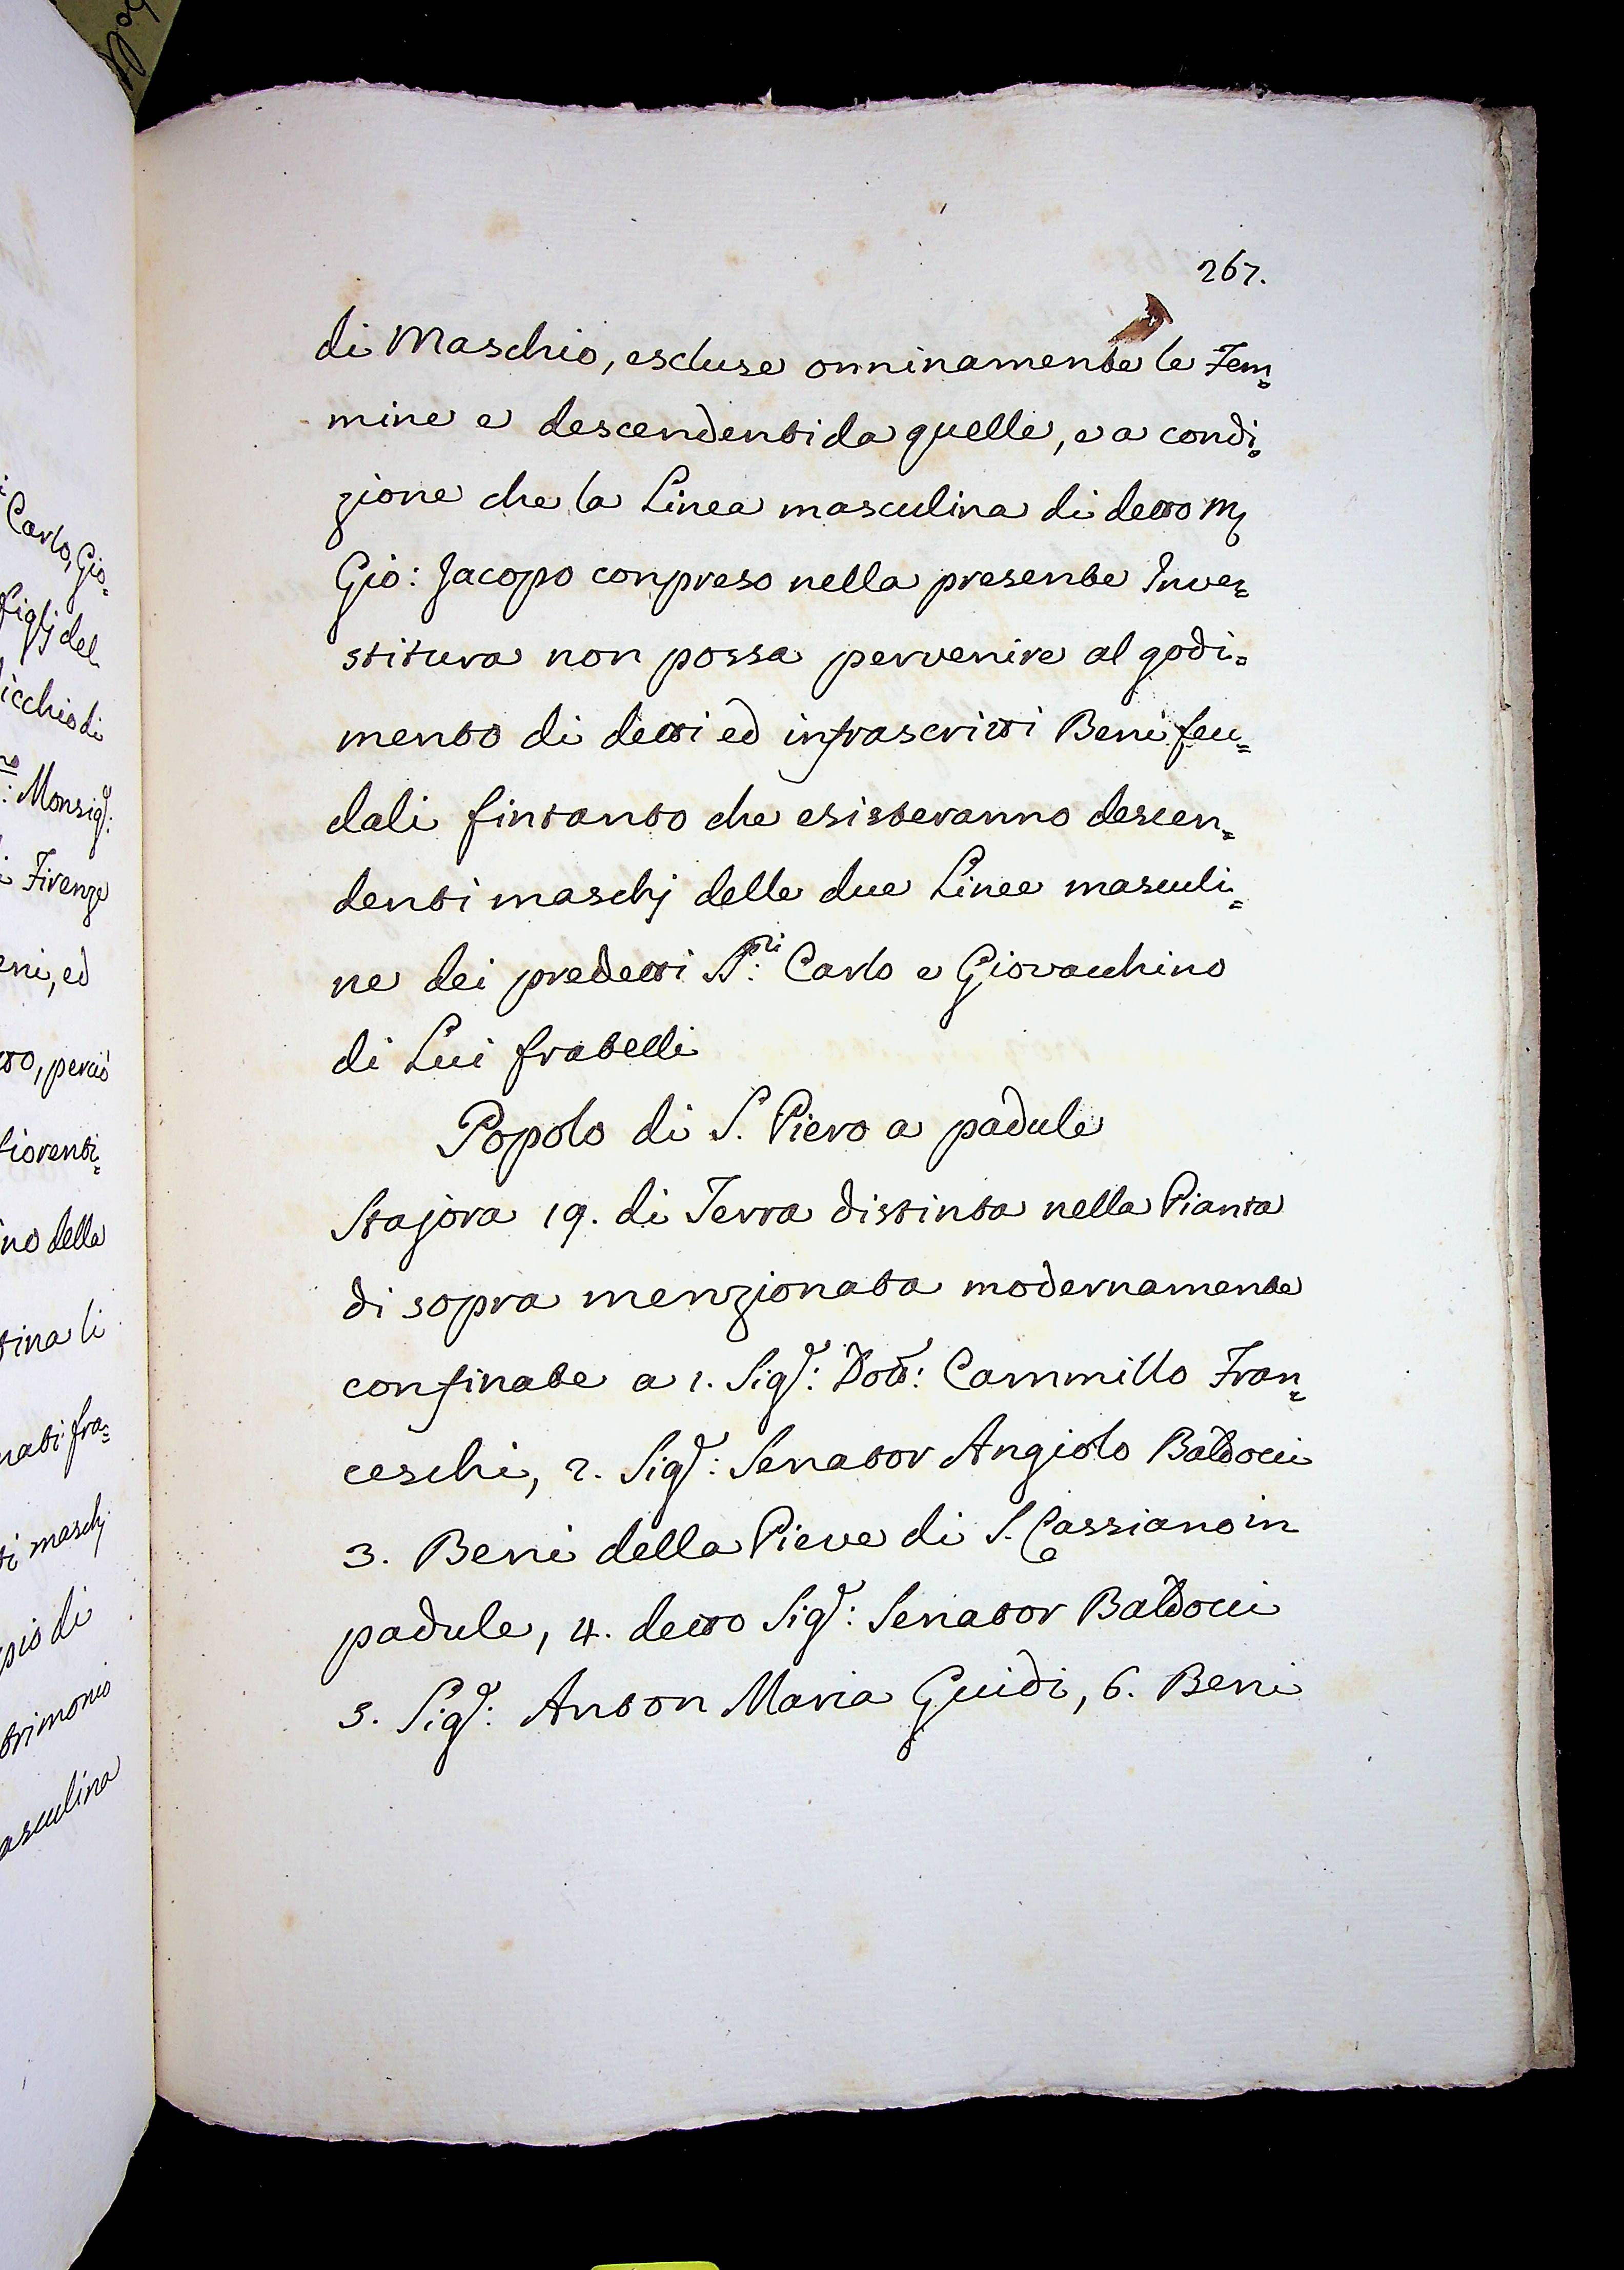 267.
di Maschio, escluse onninamente le Fem=
mine e descendenti da quelle, e a condi=
zione che la Linea masculina di detto M
Gio: Jacopo conpreso nella presente Inve=
stitura non possa pervenire al godi=
mento di detti ed infrascritti Beni feu=
dali fintanto che esisteranno descen=
denti maschj delle due Linee masculi=
ne dei predetti SS.ri Carlo e Giovacchino
di Lui fratelli
Popolo di S. Piero a padule
Stajora 19. di Terra distinta nella Pianta
di sopra menzionata modernamente
confinate a 1. Sig.r: Dott: Cammillo Fran=
ceschi, 2. Sig.r: Senator Angiolo Baldocci
3. Beni della Pieve di S. Cassiano in
padule, 4. detto Sig.r: Senator Baldocci
5. Sig.r: Anton Maria Guidi, 6. Beni
Carlo, Gio=
figlj del
icchio di
: Monsig.r:
Firenze
eni, ed
tto, perciò
fiorenti=
no della
tina li
nati fra=
ti maschj
pio di
trimonio
asculina